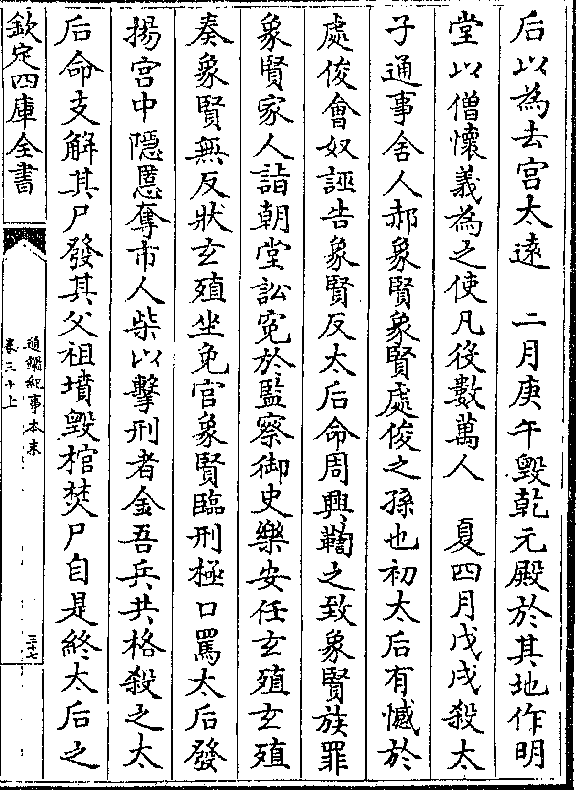 后以為去宫太逺　二月庚午毁乾元殿於其地作明
堂以僧懷義為之使凡役數萬人　夏四月戊戌殺太
子通事舍人郝象賢象賢處俊之孫也初太后有憾於
處俊會奴誣告象賢反太后命周興鞫之致象賢族罪
象賢家人詣朝堂訟寃於監察御史樂安任玄殖玄殖
奏象賢無反狀玄殖坐免官象賢臨刑極口罵太后發
揚宫中隱慝奪市人柴以擊刑者金吾兵共格殺之太
后命支解其尸發其父祖墳毁棺焚尸自是終太后之
欽定四庫全書
通鑑紀事本末
卷三十上
三十七